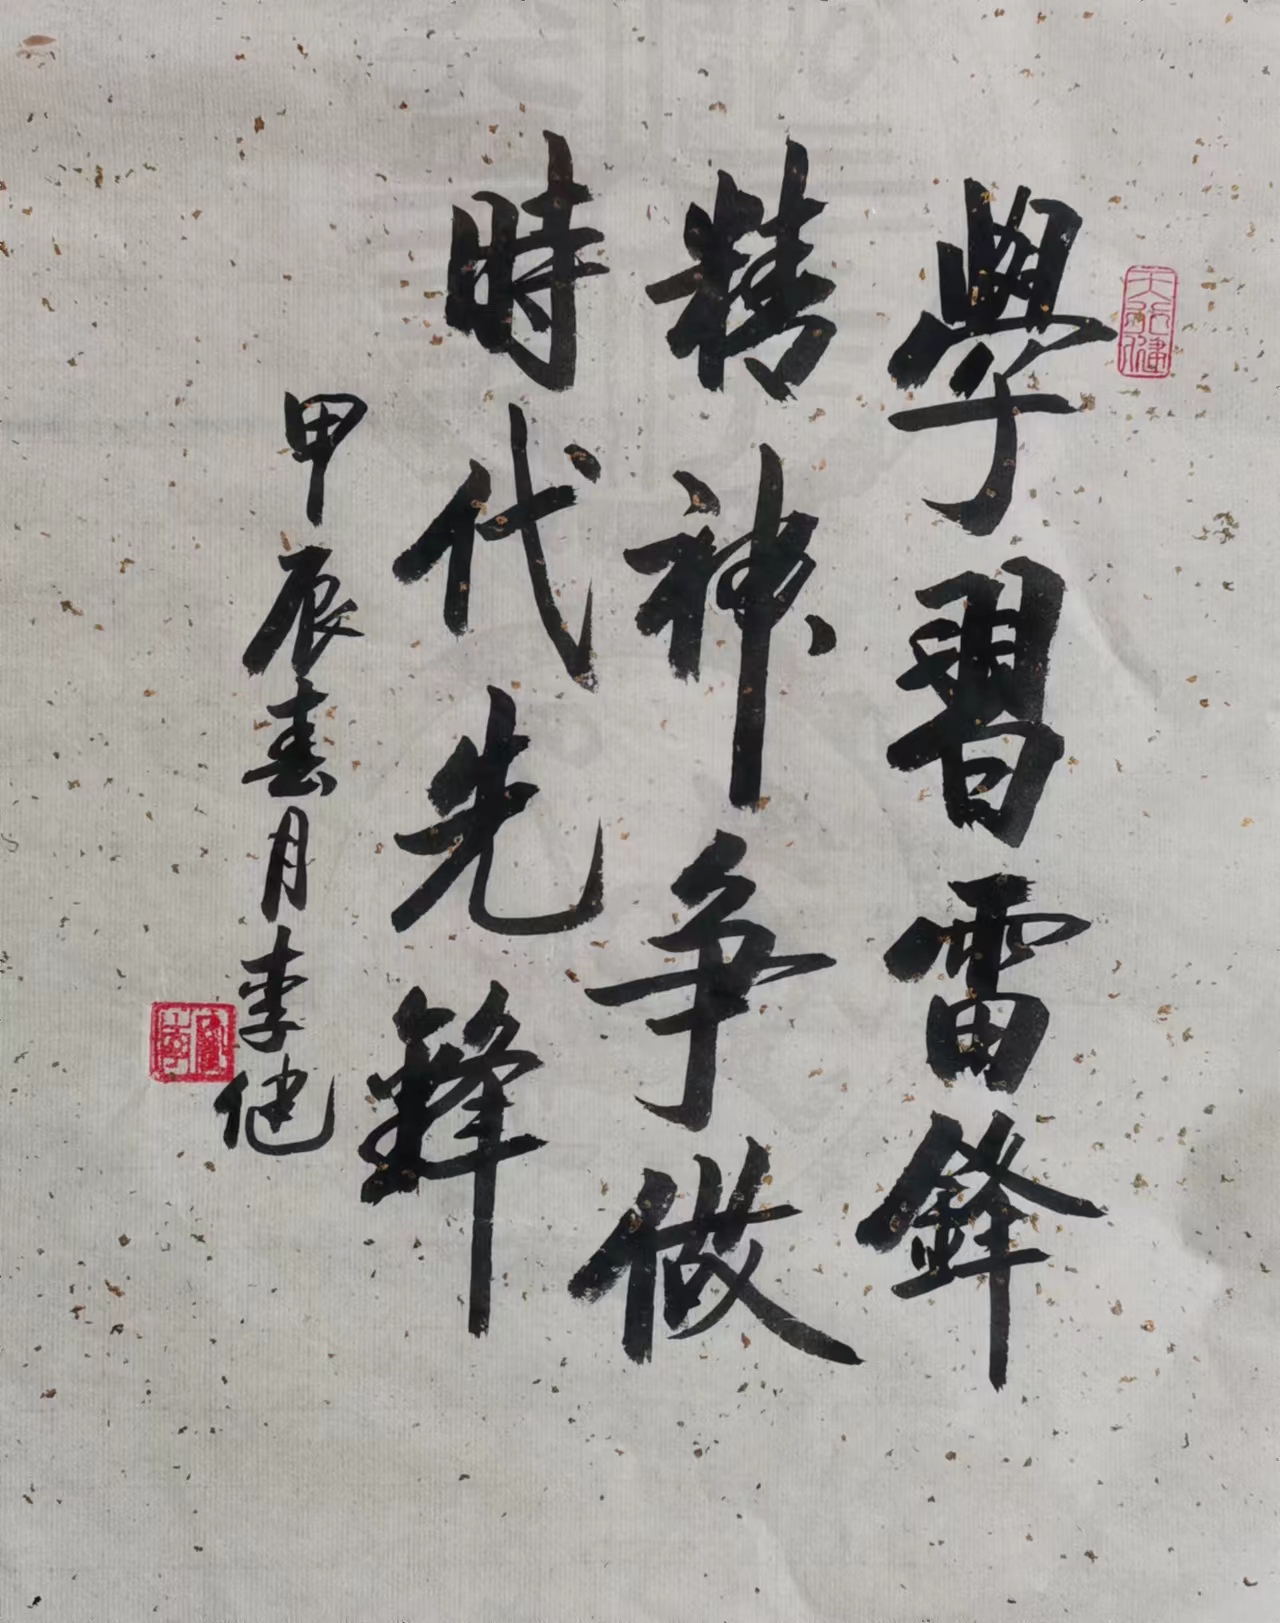 學習雷鋒
精神争做
時代先鋒
甲辰春月李健
天行健